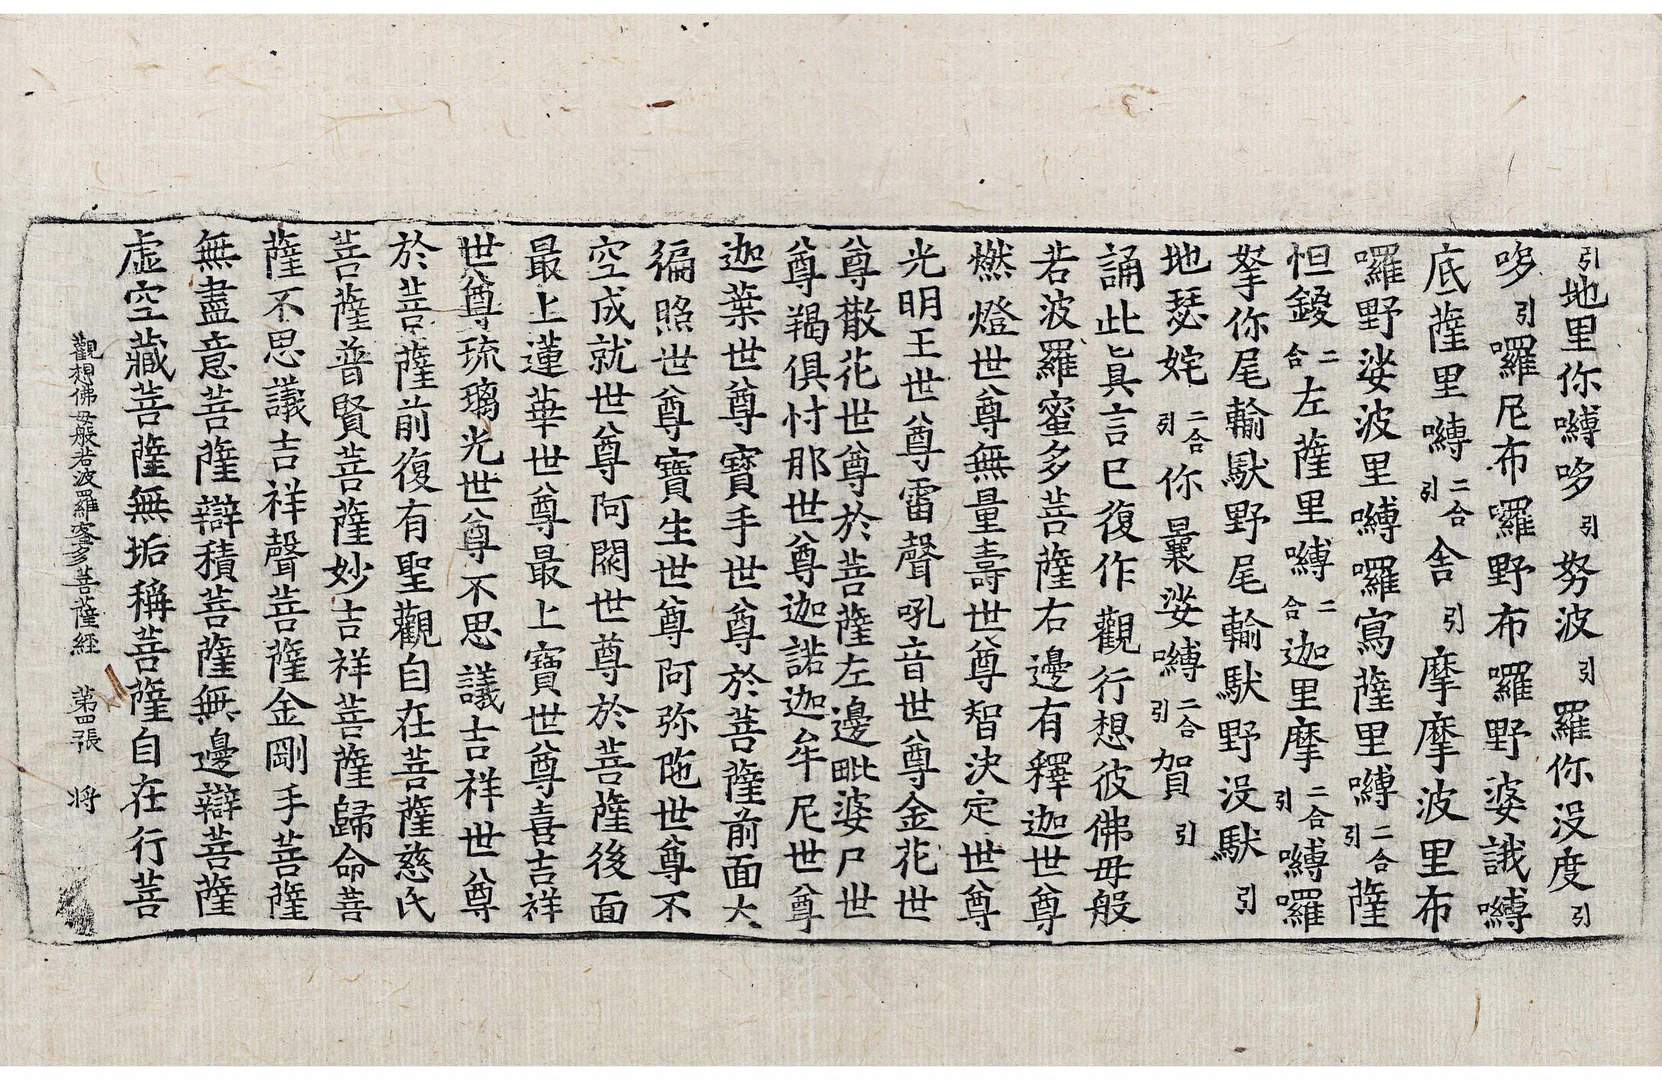 引地里你嚩哆引努波引羅你没度引
哆引囉尼布囉野布囉野婆誐嚩
底薩里嚩二合引舍引摩摩波里布
囉野娑波里嚩囉寫薩里嚩二合引薩
怛鑁二合左薩里嚩二合迦里摩二合引嚩囉
拏你尾輸馱野尾輸馱野没馱引
地瑟姹二合引你曩娑嚩二合引賀引
誦此真言已復作觀行想彼佛毋般
若波羅蜜多菩薩右邊有釋迦世尊
燃燈世尊無量壽世尊智決定世尊
光明王世尊雷聲吼音世尊金花世
尊散花世尊於菩薩左邊毗婆尸世
尊羯俱忖那世尊迦諾迦牟尼世尊
迦葉世尊寶手世尊於菩薩前面大
徧照世尊寶生世尊阿弥陁世尊不
空成就世尊阿閦世尊於菩薩後面
最上蓮華世尊最上寶世尊喜吉祥
世尊琉璃光世尊不思議吉祥世尊
於菩薩前復有聖觀自在菩薩慈氏
菩薩普賢菩薩妙吉祥菩薩歸命菩
薩不思議吉祥聲菩薩金剛手菩薩
無盡意菩薩辯積菩薩無邊辯菩薩
虛空藏菩薩無垢稱菩薩自在行菩
觀想佛毋般若波羅蜜多菩薩経 第四張 将